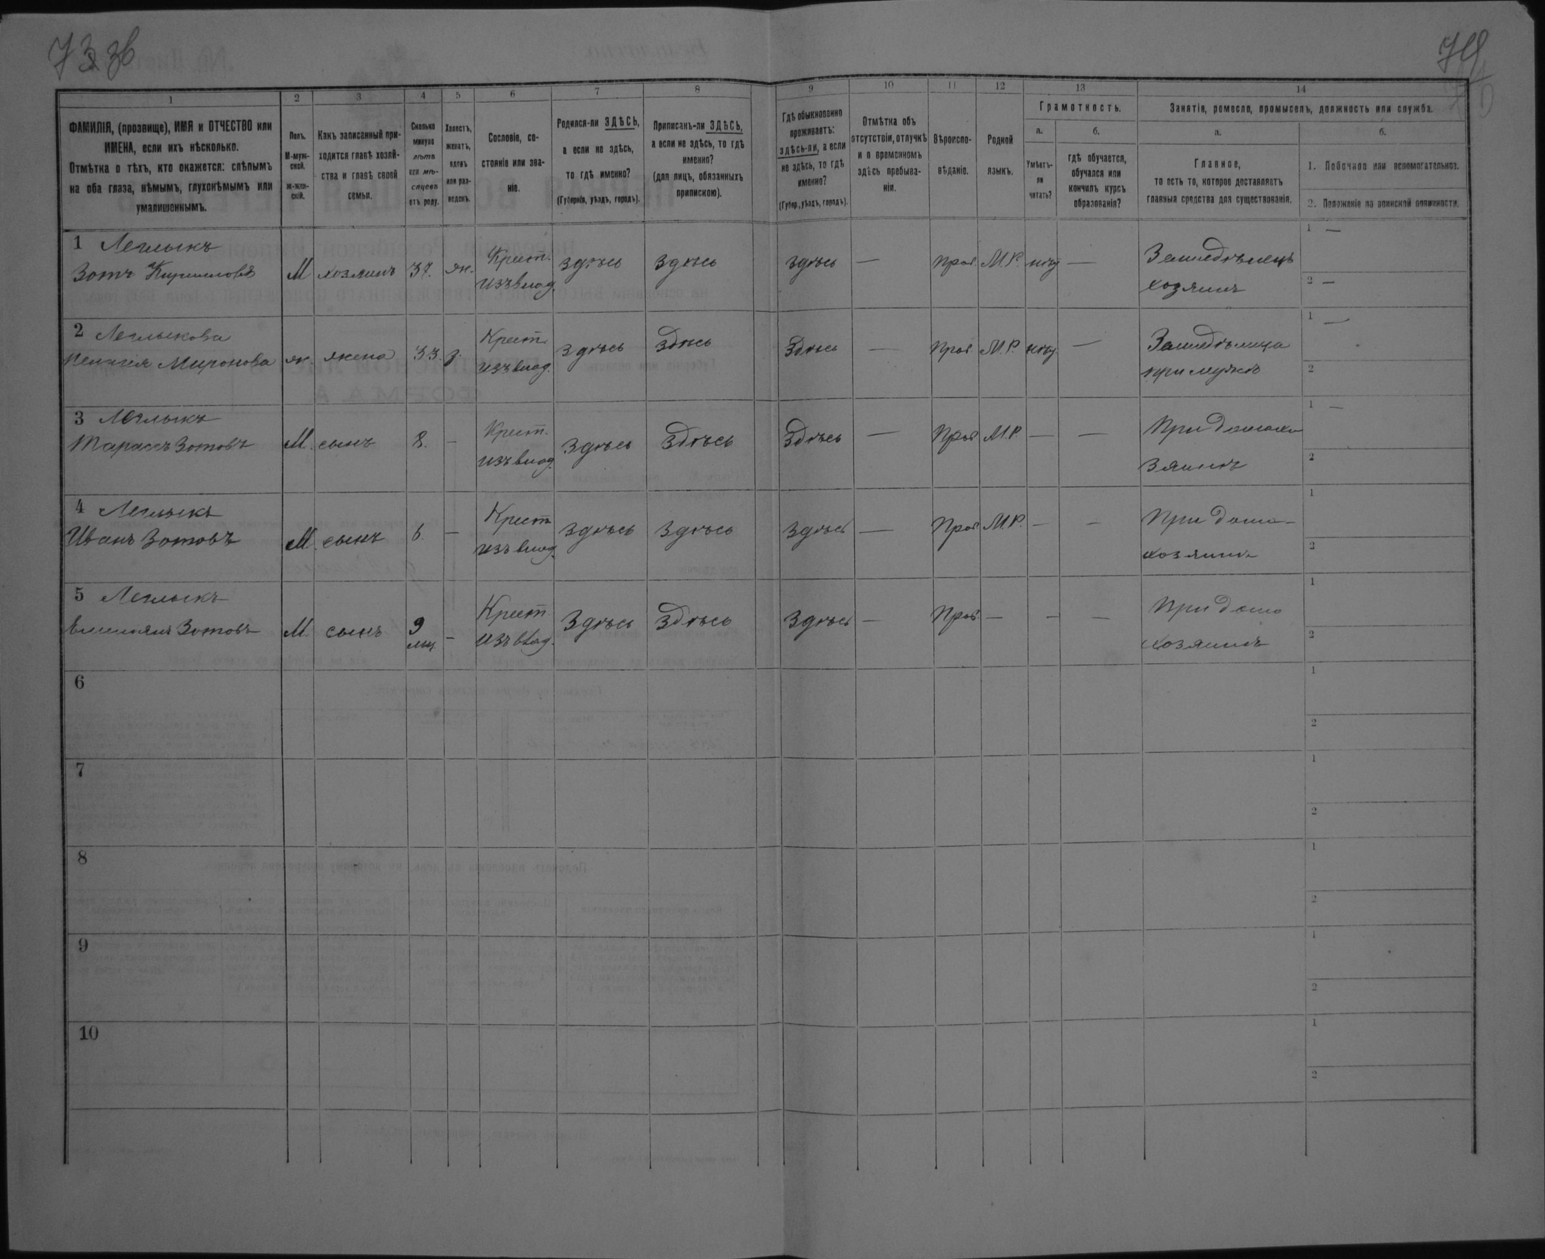 73 об
74
1 2 3 4 5 6 7 8 9 10 11 12 13 14
ФАМИЛІЯ, (прозвище), ИМЯ и ОТЧЕСТВО или
ИМЕНА, если ихъ нѣсколько.
Отмѣтка о тѣхъ, кто окажется: слѣпымъ
на оба глаза, нѣмымъ, глухонѣмымъ или
умалишоннымъ.
Полъ.
М-муж-
ской.
ж-жен-
скій.
Какъ записанный при-
ходится главѣ хозяй-
ства и главѣ своей
семьи.
Сколько
минуло
лѣтъ
или мѣ-
сяцевъ
отъ роду.
Холостъ,
женатъ,
вдовъ
или раз-
веденъ.
Сословіе, со-
стояніе или зва-
ніе.
Родился-ли ЗДѢСЬ,
а если не здѣсь,
то гдѣ именно?
(Губернія, уѣздъ, городъ).
Приписанъ-ли ЗДѢСЬ,
а если не здѣсь, то гдѣ
именно?
(для лицъ, обязанныхъ
припискою).
Гдѣ обыкновенно
проживаетъ:
здѣсь-ли, а если
не здѣсь, то гдѣ
именно?
(Губер., уѣздъ, городъ).
Отмѣтка объ
отсутствіи, отлучкѣ
и о временномъ
здѣсь пребыва-
ніи.
Вѣроиспо-
вѣданіе.
Родной
языкъ.
Грамотность.
а.
Умѣетъ-
ли
читать?
б.
гдѣ обучается,
обучался или
кончилъ курсъ
образованія?
Занятія, ремесло, промыселъ, должность или служба.
а.
Главное,
то есть то, которое доставляетъ
главныя средства для существованія.
б.
1. Побочное или вспомогательное.
2. Положеніе по воинской повинности.
1 Леглыкъ
Зотъ Кирилловъ М хозяинъ 37. ж. Крест. изъ влад. здѣсь здѣсь здѣсь — Прав М.Р. нѣтъ — Земледѣлецъ хозяинъ 1 — 2 —
2 Леглыкова
Пелагія Миронова ж. жена 33 з. Крест. изъ влад. здѣсь здѣсь здѣсь — Прав М.Р. нѣтъ — Земледѣлица при мужѣ 1 — 2
3 Леглыкъ
Тарасъ Зотовъ М. сынъ 8. — Крест. изъ влад. здѣсь здѣсь здѣсь — Прав М.Р. — — 1 — 2
4 Леглыкъ
Иванъ Зотовъ М. сынъ 6. — Крест. изъ влад. здѣсь здѣсь здѣсь — Прав М.Р. — — При домо- хозяинѣ 1 2
5 Леглыкъ
Зотовъ М. сынъ 9 мц — Крест изъ влад. здѣсь здѣсь здѣсь — Прав — — — При домо хозяинѣ 1 2
6 1 2
7 1 2
8 1 2
9 1 2
10 1 2